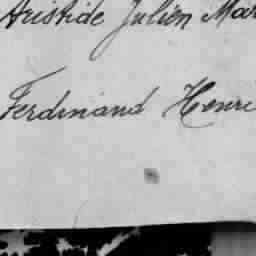 Aristide Julien Mar
Ferdinand Henri